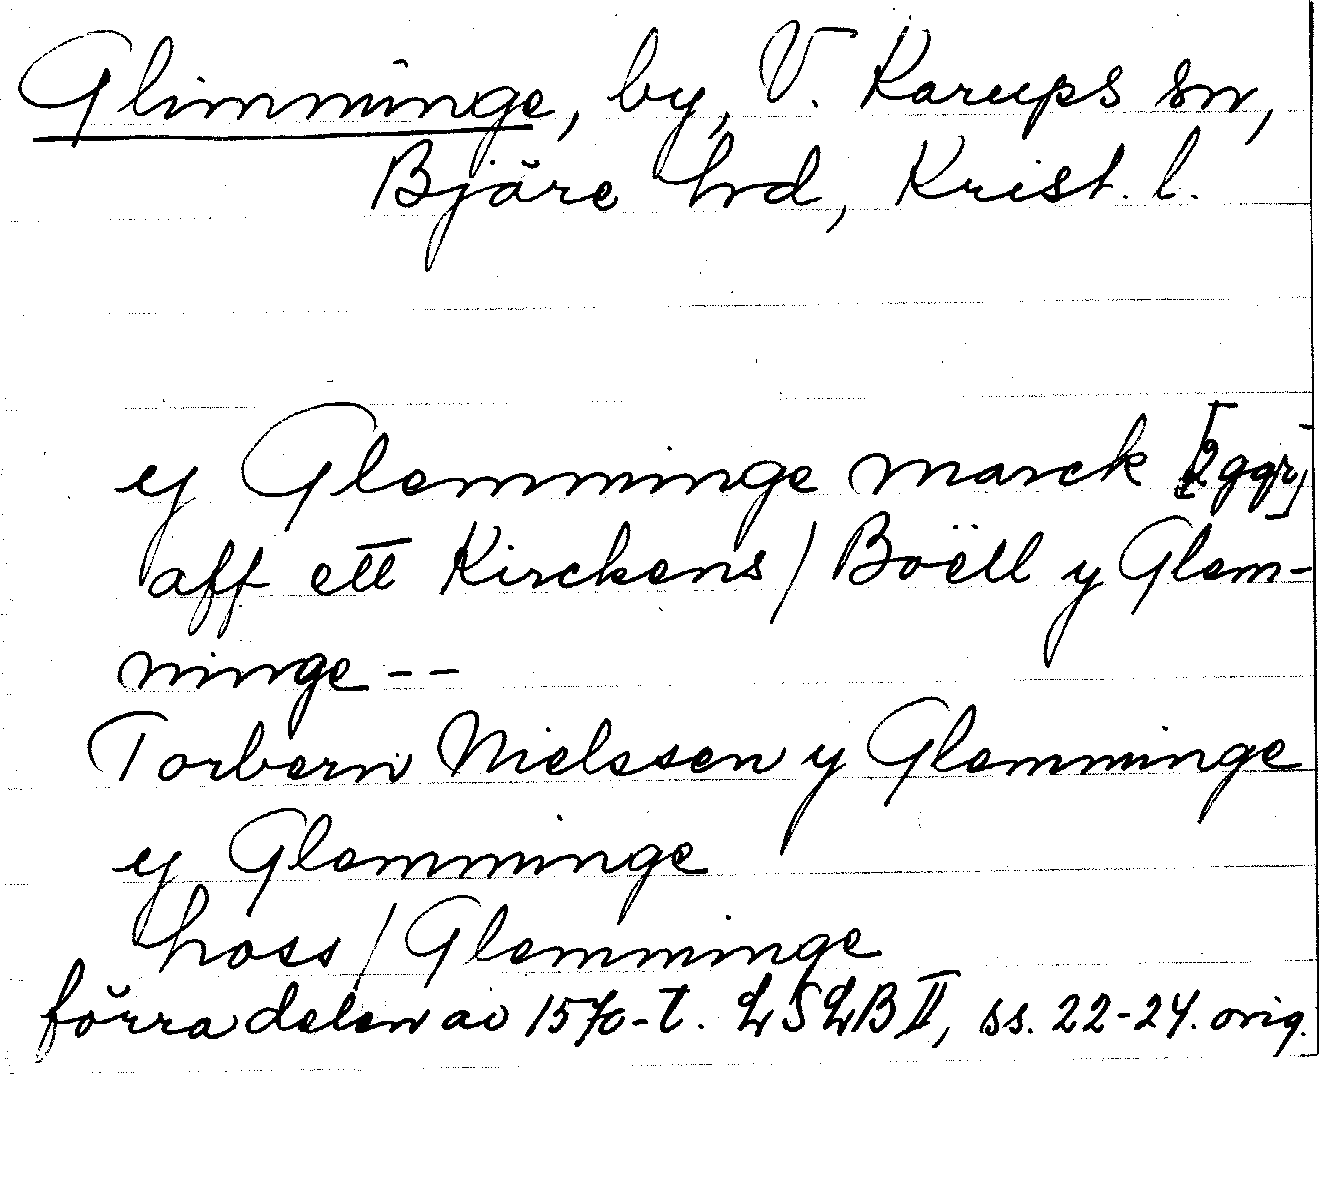 Glimminge, by, V. Karups sn,
Bjäre hd, Krist. l.
y Glemminge marck [2 ggr]
aff ett Kirckens / Boëll y Glem-
ninge --
Torbern Nielssen y Glemminge
y Glemminge
hoss / Glemminge
förra delen av 1570-t. LSLB II, ss. 22-24. orig.